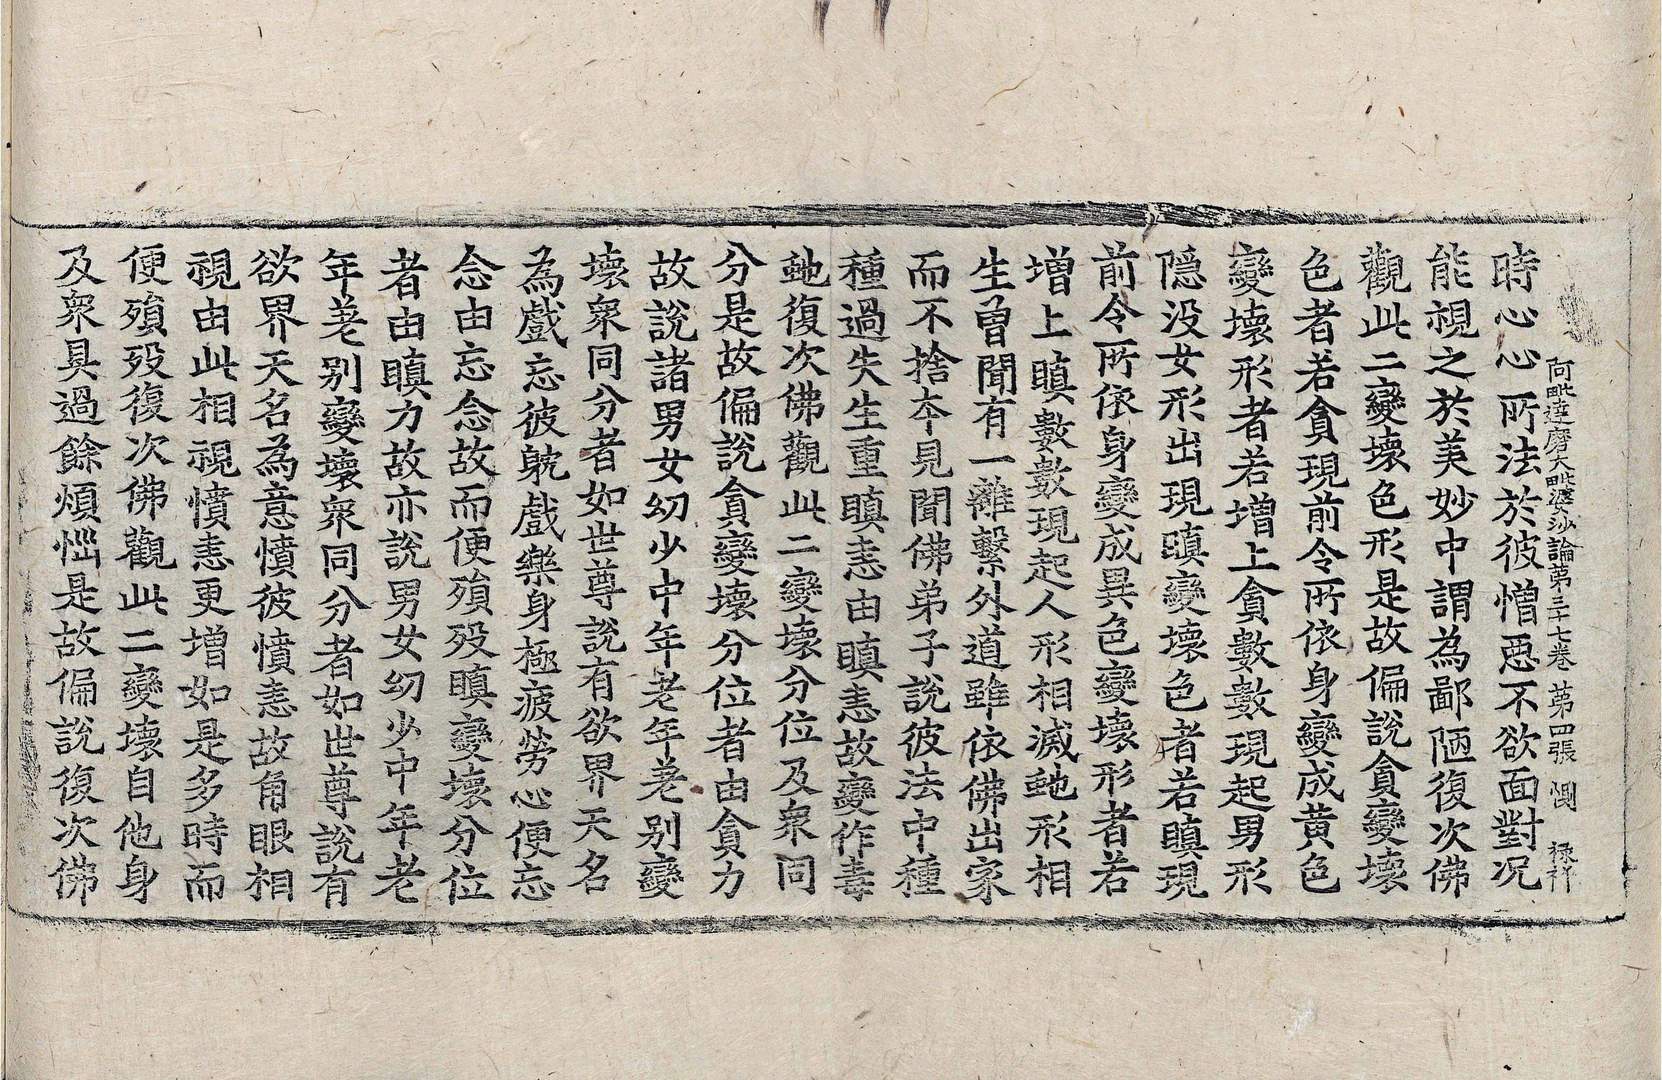 阿毗達磨大毗婆沙論第三十七卷 第四張 惻 祿祥
時心心所法於彼憎惡不欲面對况
能視之於美妙中謂為鄙陋復次佛
觀此二變壞色形是故偏說貪變壞
色者若貪現前令所依身變成黃色
變壞形者若增上貪數數現起男形
隱沒女形出現瞋變壞色者若瞋現
前令所依身變成異色變壞形者若
增上瞋數數現起人形相滅虵形相
生曾聞有一離繫外道雖依佛出家
而不捨本見聞佛弟子說彼法中種
種過失生重瞋恚由瞋恚故變作毒
虵復次佛觀此二變壞分位及衆同
分是故偏說貪變壞分位者由貪力
故說諸男女幼少中年老年差别變
壞衆同分者如世尊說有欲界天名
為戲忘彼躭戲樂身極疲勞心便忘
念由忘念故而便殞歿瞋變壞分位
者由瞋力故亦說男女幼少中年老
年差别變壞衆同分者如世尊說有
欲界天名為意憤彼憤恚故角眼相
視由此相視憤恚更增如是多時而
便殞歿復次佛觀此二變壞自他身
及衆具過餘煩惱是故偏說復次佛